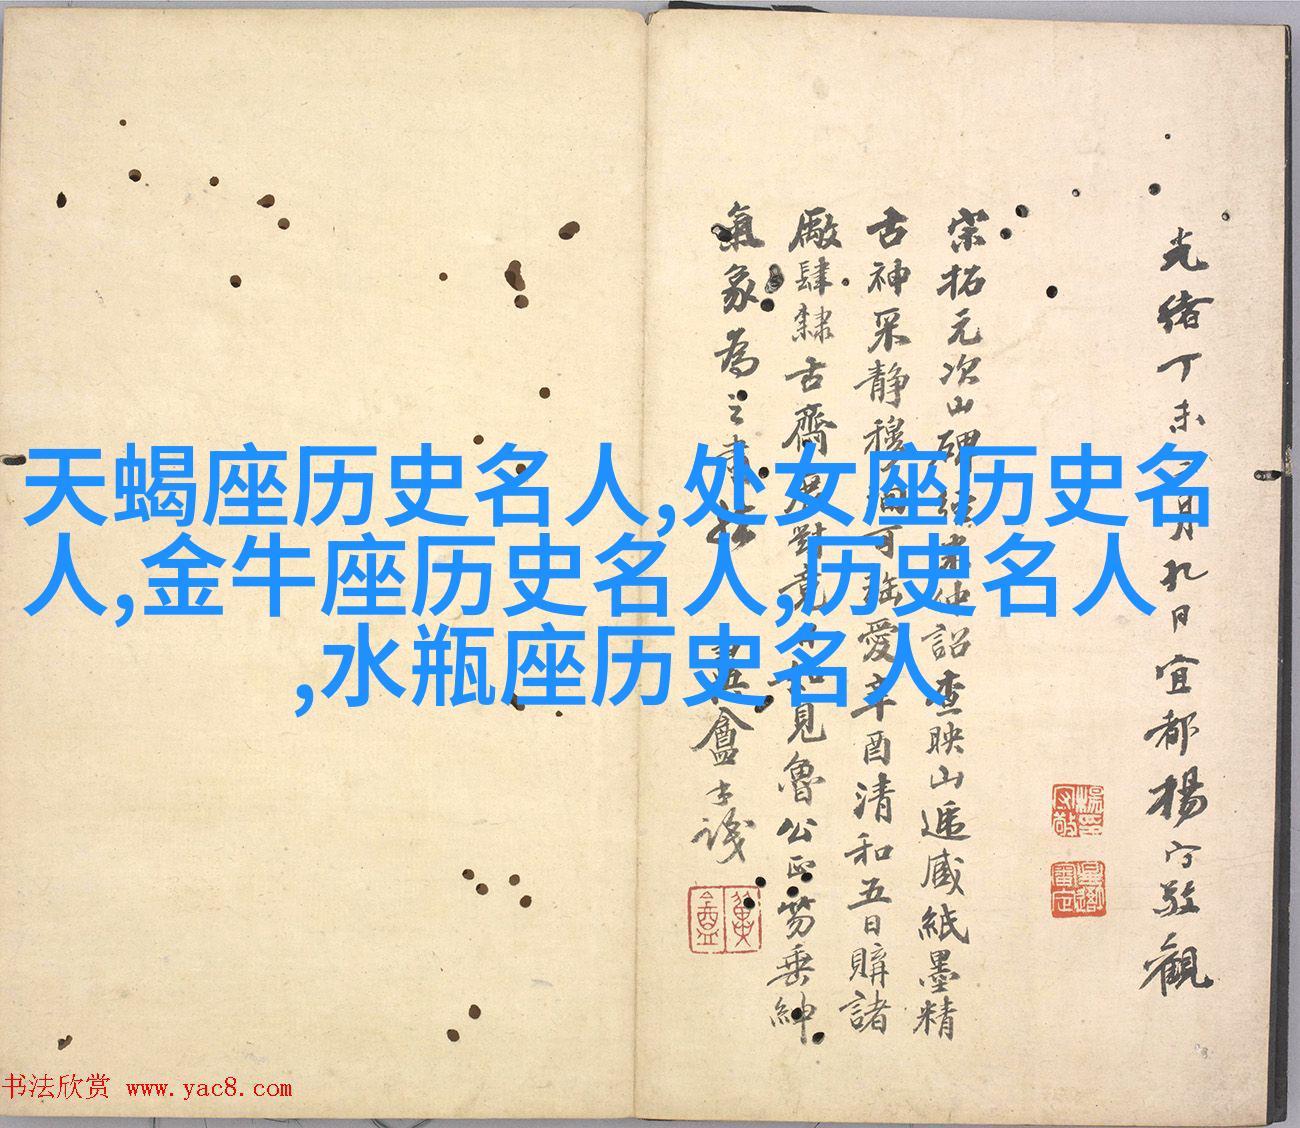 光緒丁未
月九日宜都楊守敬觀
宋拓元次山碑
詔查映山遞藏紙墨精
古神采静穆
可
愛辛酉清和五日購諸
廠肆隸古齋
對竟
見魯公正笏垂紳
氣象為之
盦
天蝎座历史名人,处女座历史名
人,金牛座历史名人,历史名人
,水瓶座历史名人
书法欣赏 www.yac8.com